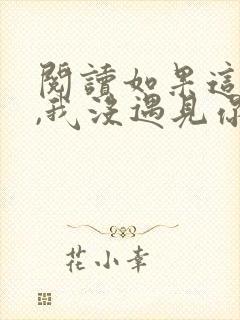 閱讀如果這
,我沒遇見你
花小幸